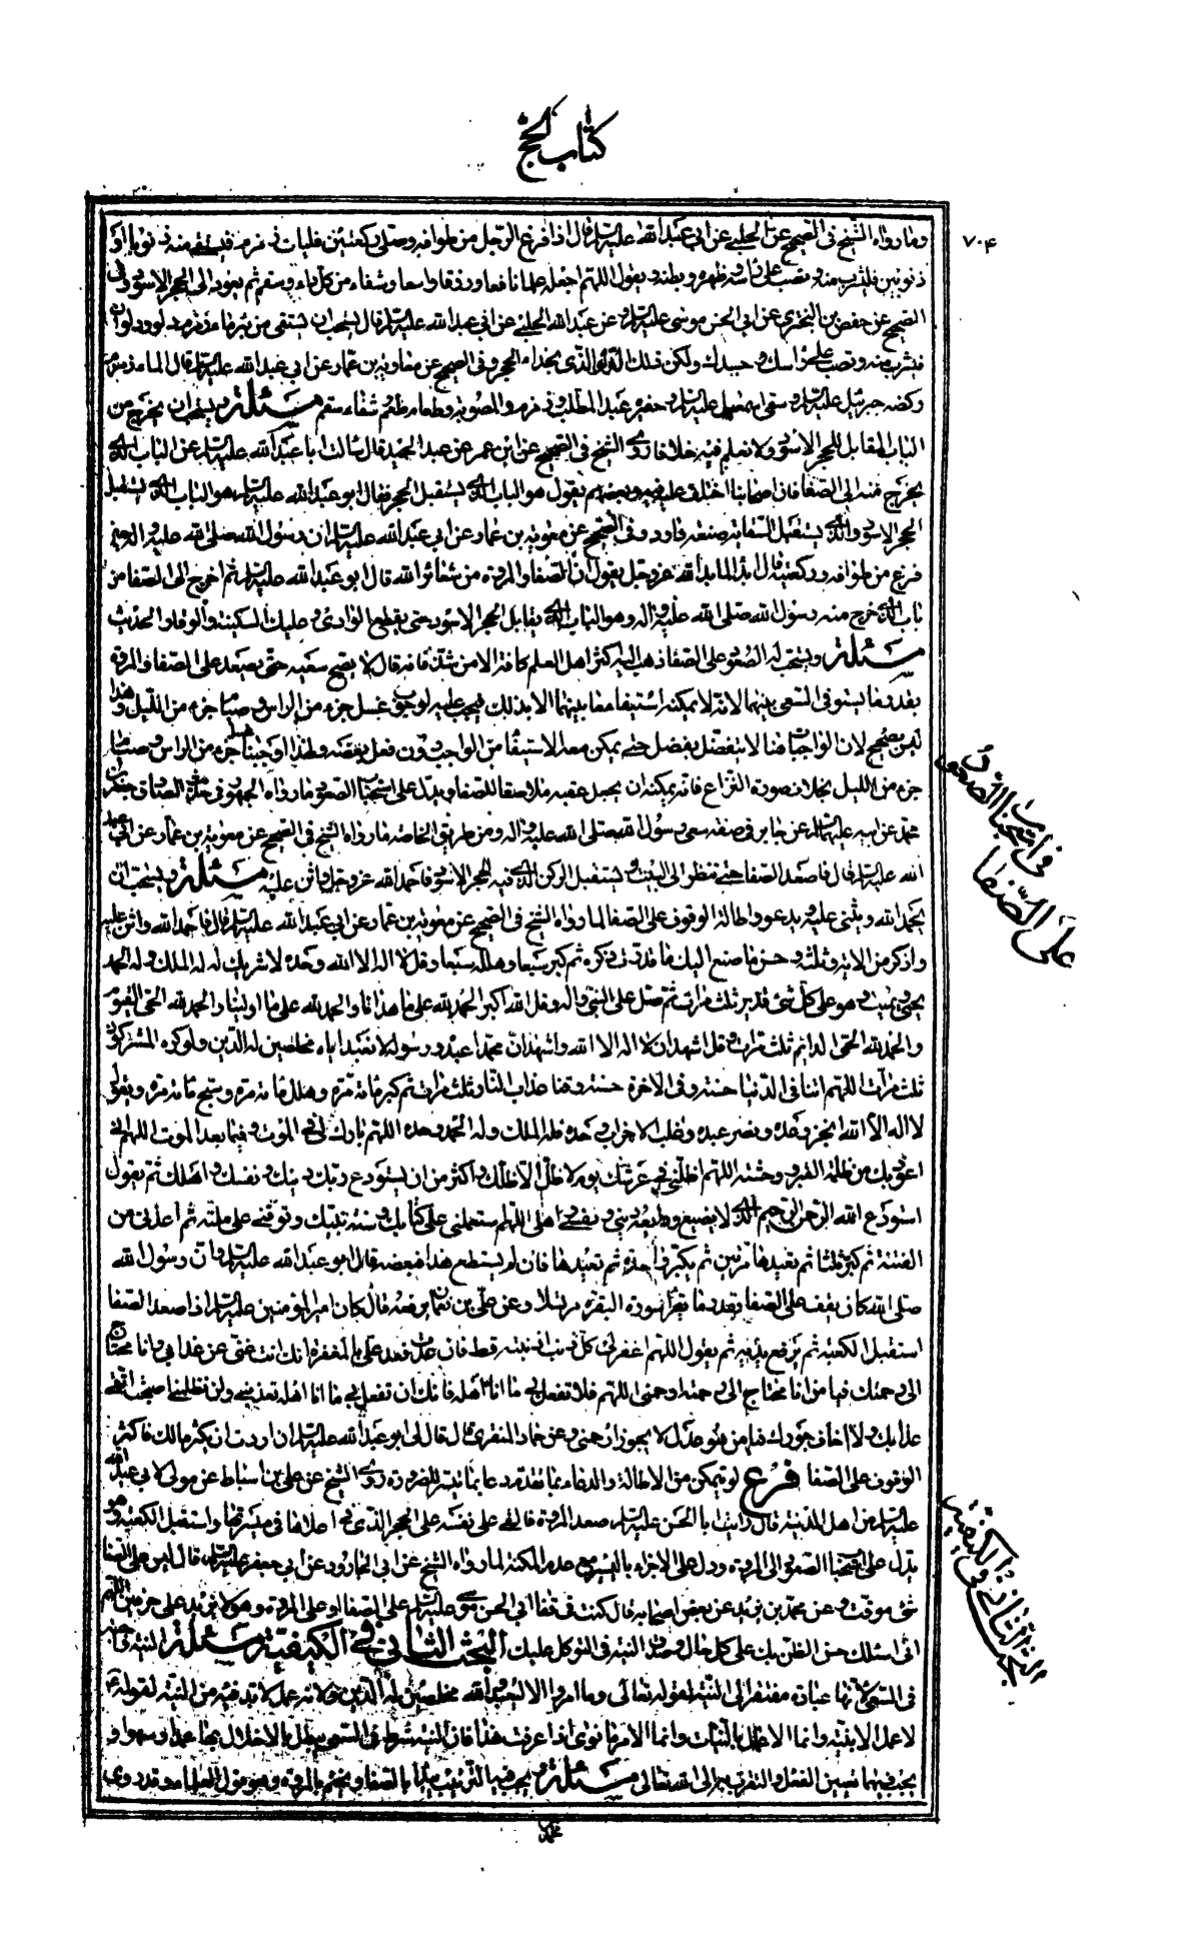 كتاب الحج
٧٠۴
وما رواه الشيخ فى الصحيح عن الحلبي عن ابي عبد الله عليه السلم قال اذا فرغ الرجل من طوافه وصلى ركعتين فليات زمزم فليستق منه ذنوبا او
ذنوبين فليشرب منه وليصب على راسه وظهره وبطنه ويقول اللهم اجعله علما نافعا ورزقا واسعا وشفاء من كل داء وسقم ثم يعود الى الحجر الاسود وفى
الصحيح عن حفص بن البختري عن ابي الحسن موسى عليه السلم وعن عبيد الله الحلبي عن ابي عبد الله عليه السلم قال يستحب ان يستقى من ماء زمزم دلو ودلوان
فيشرب منه وتصب على راسك وجسدك وليكن ذلك من الدلو الذى بحذاء الحجر وفى الصحيح عن معاوية بن عمار عن ابي عبد الله عليه السلم قال اسماء زمزم
وكضة جبرئيل عليه السلم وسقيا اسمعيل عليه السلم وحفيرة عبد المطلب وزمزم والمصونة وطعام طعم وشفاء سقم مسئلة ويستحب ان يخرج من
الباب المقابل للحجر الاسود ولا نعلم فيه خلافا روى الشيخ فى الصحيح عن عبد الحميد قال سالت ابا عبد الله عليه السلم عن الباب الذى
يخرج منه الى الصفا فان اصحابنا اختلفوا على فيه فبعضهم يقول هو الباب الذى يستقبل الحجر فقال ابو عبد الله عليه السلم هو الباب الذى يستقبل
الحجر الاسود والذى يستقبل السقاية صنعه داود وفى الصحيح عن معوية بن عمار عن ابي عبد الله عليه السلم ان رسول الله صلى الله عليه واله حين
فرغ من طوافه وركعتيه قال ابدا بما بدا الله عز وجل يقول ان الصفا والمروة من شعائر الله قال ابو عبد الله عليه السلم ثم اخرج الى الصفا من
باب الذى خرج منه رسول الله صلى الله عليه واله وهو الباب الذى يقابل الحجر الاسود حتى يقطع الوادى وعليك السكينة والوقار الحديث
مسئلة ويستحب له الصعود على الصفا ذهب اليه اكثر اهل العلم كافة الا من شذ فانه قال لا يصح سعيه حتى يصعد على الصفا والمروة
بقدر ما يستوفى السعى بينهما لانه لا يمكنه استيفاء ما بينهما الا بذلك فيجب عليه لوجوب غسل جزء من الراس وصيام جزء من الليل وهذا
ليس بصحيح لان الواجبات هنا لا ينفصل بفصل حتى يمكن معه الاستيفاء من الواجب دون فعل بعضه ولهذا اوجبنا غسل جزء من الراس وصيام
جزء من الليل بخلاف صورة النزاع فانه يمكنه ان يجعل عقبه ملاصقا للصفا ويدل على استحباب الصعود ما رواه الجمهور
محمد عن ابيه عليهما السلم عن جابر فى صفة سعى رسول الله صلى الله عليه واله ومن طريق الخاصة ما رواه الشيخ فى الصحيح عن معوية بن عمار عن ابي عبد
الله عليه السلم قال فاصعد الصفا حتى تنظر الى البيت وتستقبل الركن الذى فيه الحجر الاسود فاحمد الله عز وجل واثن عليه مسئلة ويستحب ان
يحمد الله ويثنى عليه ويدعو واطالة الوقوف على الصفا لما رواه الشيخ فى الصحيح عن معوية بن عمار عن ابي عبد الله عليه السلم قال فاحمد الله واثن عليه
واذكر من الائه وبلائه وحسن ما صنع اليك ما قدرت على ذكره ثم كبر سبعا وهلله سبعا وقل لا اله الا الله وحده لا شريك له له الملك وله الحمد
يحيى ويميت وهو على كل شئ قدير ثلث مرات ثم صل على النبى واله وقل الله اكبر الحمد لله على ما هدانا والحمد لله على ما اولينا والحمد لله الحى القيوم
والحمد لله الحى الدائم ثلث مرات وقل اشهد ان لا اله الا الله واشهد ان محمدا عبده ورسوله لا نعبد الا اياه مخلصين له الدين ولو كره المشركون
ثلث مرات اللهم اتنا فى الدنيا حسنة وفى الاخرة حسنة وقنا عذاب النار ثلث مرات ثم كبر مائة مرة وهلل مائة مرة وسبح مائة مرة ويقول
لا اله الا الله انجز وعده ونصر عبده وغلب الاحزاب وحده فله الملك وله الحمد وحده اللهم بارك لى فى الموت وفيما بعد الموت اللهم انى
اعوذ بك من ظلمة القبر ووحشته اللهم اظلنى فى عرشك يوم لا ظل الا ظلك واكثر من ان تستودع ربك دينك ونفسك واهلك ثم يقول
استودع الله الرحمن الرحيم الذى لا يضيع ودايعه دينى ونفسى واهلى اللهم استعملنى على كتابك وسنة نبيك وتوفنى على ملته ثم اعذنى من
الفتنة ثم كبر ثلثا ثم تعيدها مرتين ثم يكبر واحدة ثم تعيدها فان لم يستطع هذا فبعضه قال ابو عبد الله عليه السلم وان رسول الله
صلى الله كان يقف على الصفا بقدر ما يقرأ سورة البقرة مرتسلا وعن على بن نعمان يرفعه قال كان امير المؤمنين عليه السلم اذا صعد الصفا
استقبل الكعبة ثم يرفع يديه ثم يقول اللهم اغفر لى كل ذنب اذنبته قط فان عدت فعد على بالمغفرة انك انت غنى عن عذابى وانا محتاج
الى رحمتك فيا من انا محتاج الى رحمته ارحمنى اللهم فلا تفعل بى ما انا اهله فانك ان تفعل بى ما انا اهله تعذبنى ولن تظلمنى اصبحت اتقى
عدلك ولا اخاف جورك فيا من هو عدل لا يجوز ارحمنى وعن حماد المنقرى قال قال لى ابو عبد الله عليه السلم ان اردت ان يكثر مالك فاكثر
الوقوف على الصفا فرع لو لم يتمكن من الاطالة والدعاء بما تقدم دعا بما تيسر للضرورة روى الشيخ عن على بن اسباط عن مولى لابى عبد الله
عليه السلم من اهل المدينة قال رايت ابا الحسن عليه السلم صعد المروة فالقى على نفسه على الحجر الذى فى اعلاها فى ميسرتها واستقبل الكعبة وهو
يدل على استحباب الصعود الى المروة ودل على الاجزاء باليسير مع عدم المكنة لما رواه الشيخ عن ابى الجارود عن ابى جعفر عليه السلم قال ليس على الصفا
شئ موقت وعن محمد بن يزيد عن بعض اصحابه قال كنت فى قفا ابى الحسن موسى عليه السلم على الصفا او على المروة وهو لا يزيد على حرفين اللهم
انى اسئلك حسن الظن بك على كل حال وصدق النية فى التوكل عليك البحث الثانى فى الكيفية مسئلة النية واجبة
فى السعى لانها عبادة مفتقر الى النية لقوله تعالى وما امروا الا ليعبدوا الله مخلصين له الدين ولانه عمل لا بد فيه من النية لقوله
لا عمل الا بنية وانما الاعمال بالنيات وانما لامرء ما نوى اذا عرفت هذا فان النية شرط فى السعى يبطل بالاخلال بها عمدا وسهوا و
يجب فيها تعيين الفعل والتقرب به الى الله تعالى مسئلة ويجب فيه الترتيب يبدا بالصفا ويختم بالمروة وهو قول العلماء وقد روى
فى استحباب الصعود
على الصفا
البحث الثانى فى الكيفية